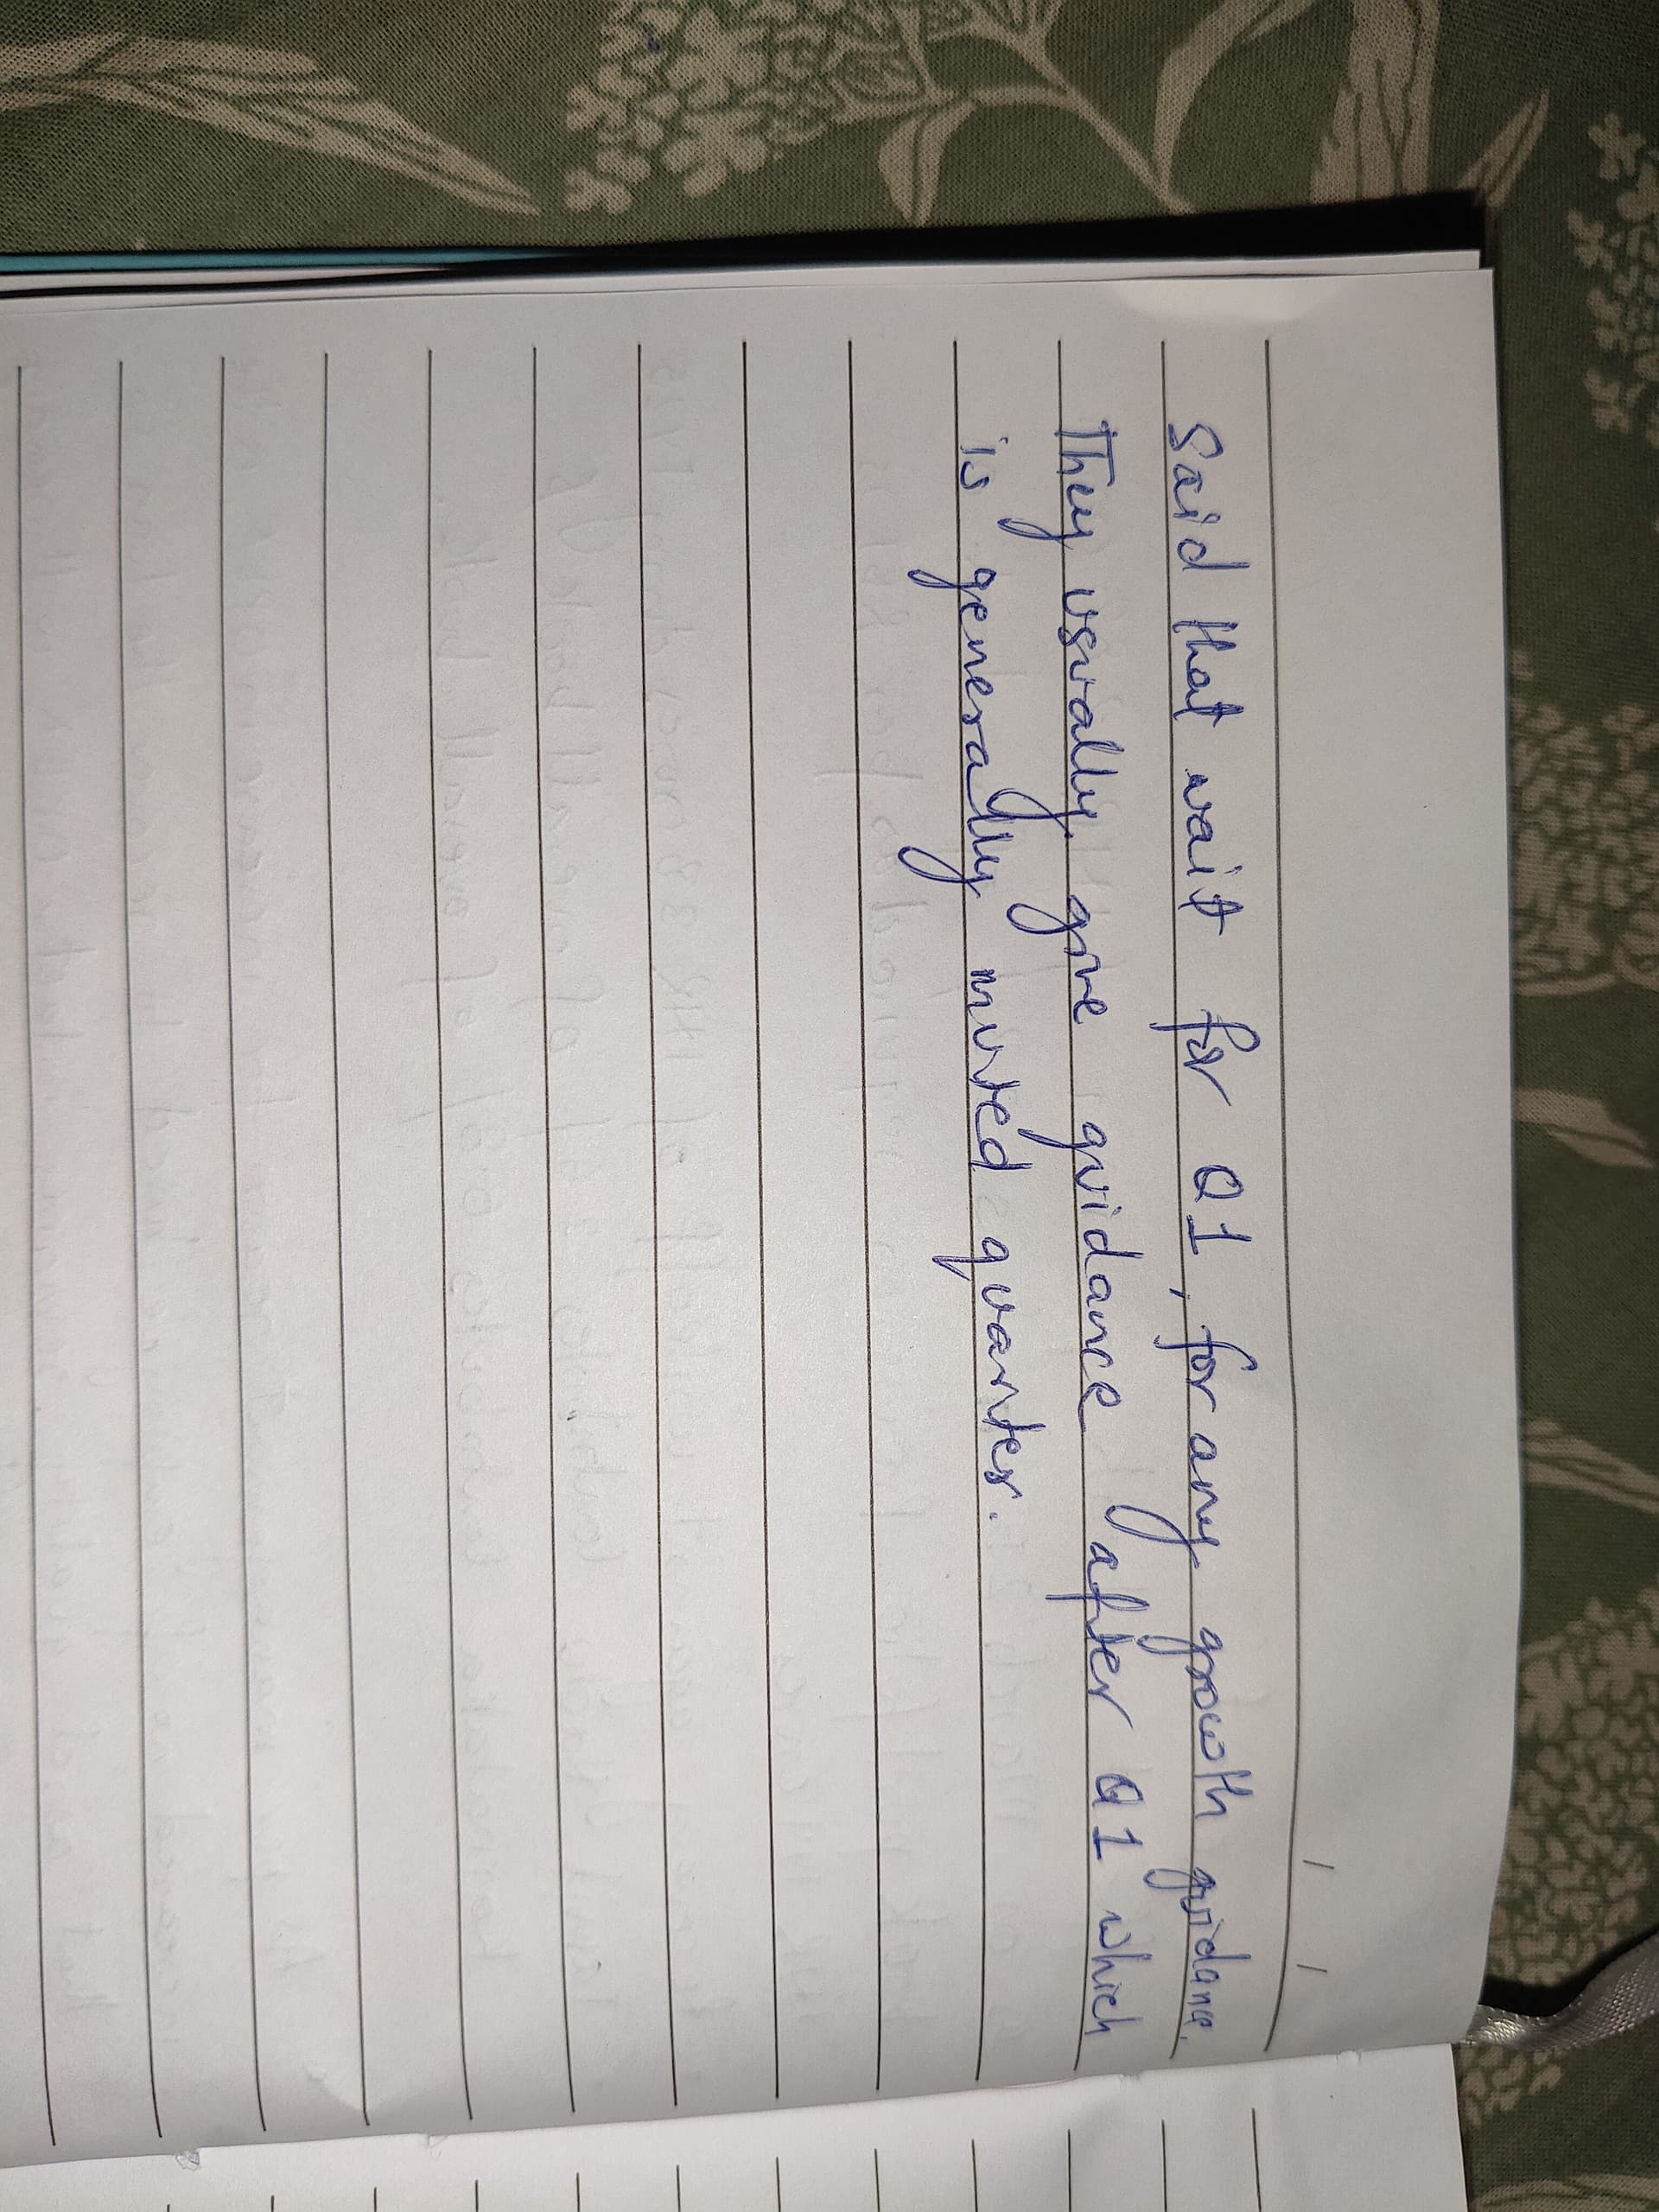 Said that wait for Q1, for any growth guidance.
They usually give guidance after Q1 which
is generally muted quarter.